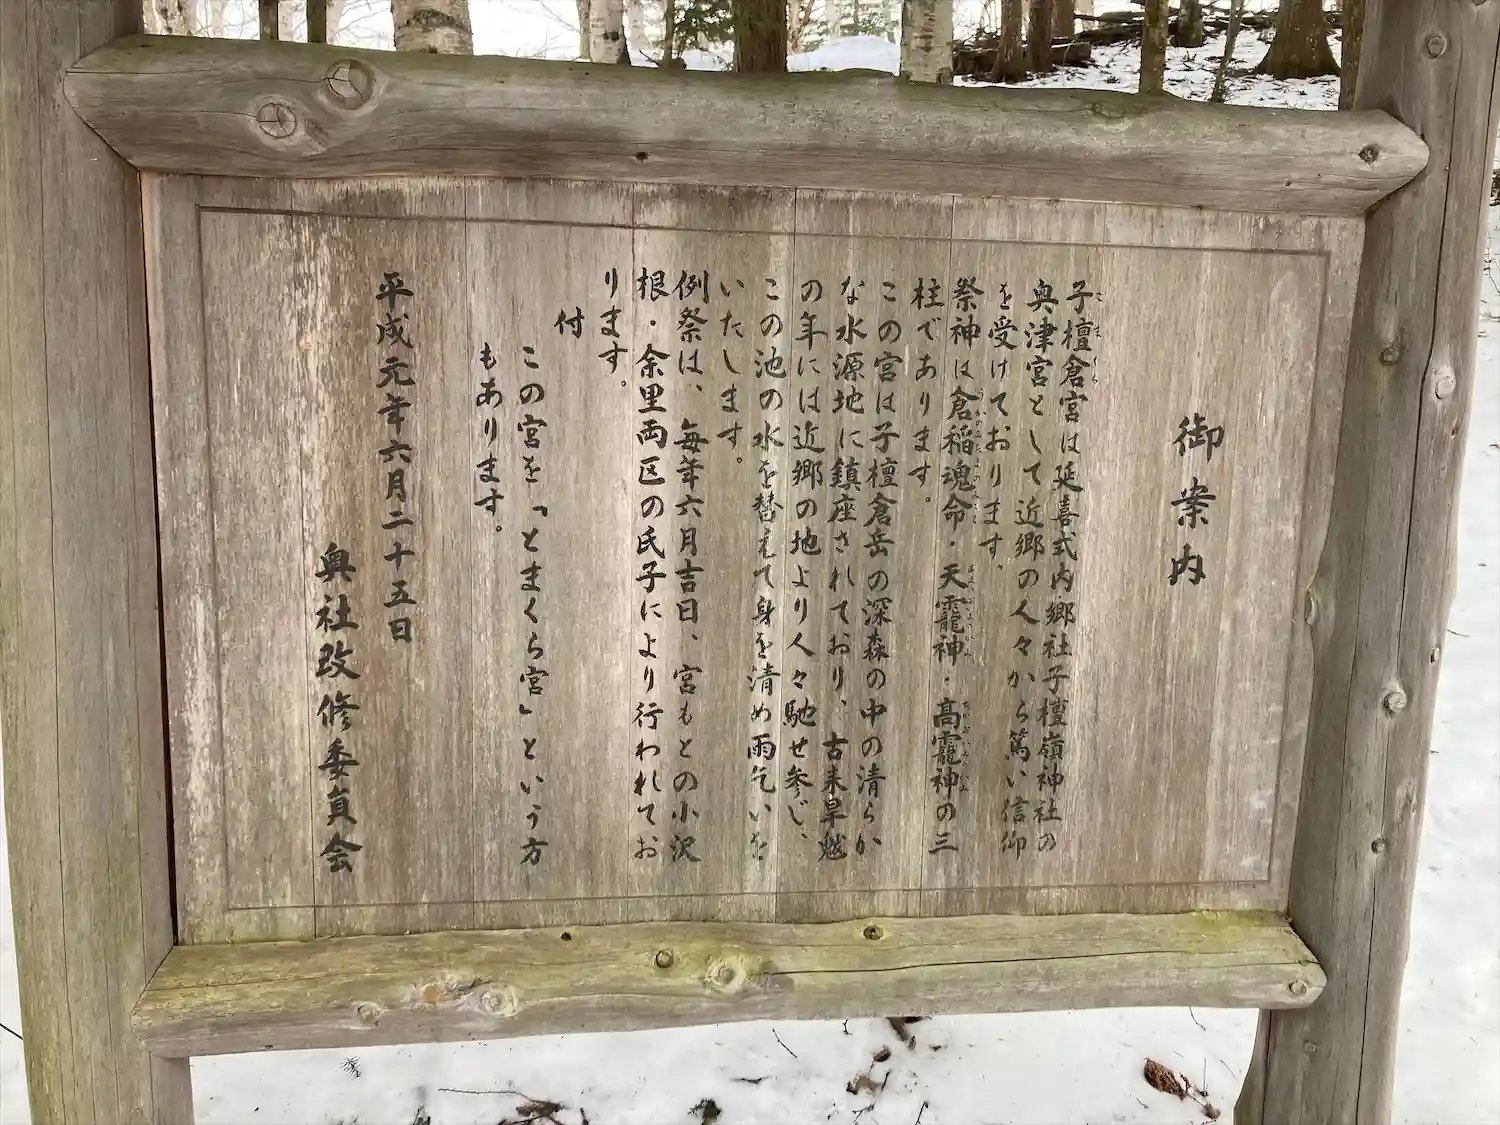 御案内
子檀倉宮は延喜式内郷社子檀嶺神社の
奥津宮として近郷の人々から篤い信仰
を受けております。
祭神は倉稲魂命・天靇神・高靇神の三
柱であります。
この宮は子檀倉岳の深森の中の清らか
な水源地に鎮座されており、古来旱魃
の年には近郷の地より人々馳せ参じ、
この池の水を替えて身を清め雨乞いを
いたします。
例祭は、毎年六月吉日、宮もとの小沢
根・余里両区の氏子により行われてお
ります。
付
この宮を「とまくら宮」という方
もあります。
平成元年六月二十五日
奥社改修委員会